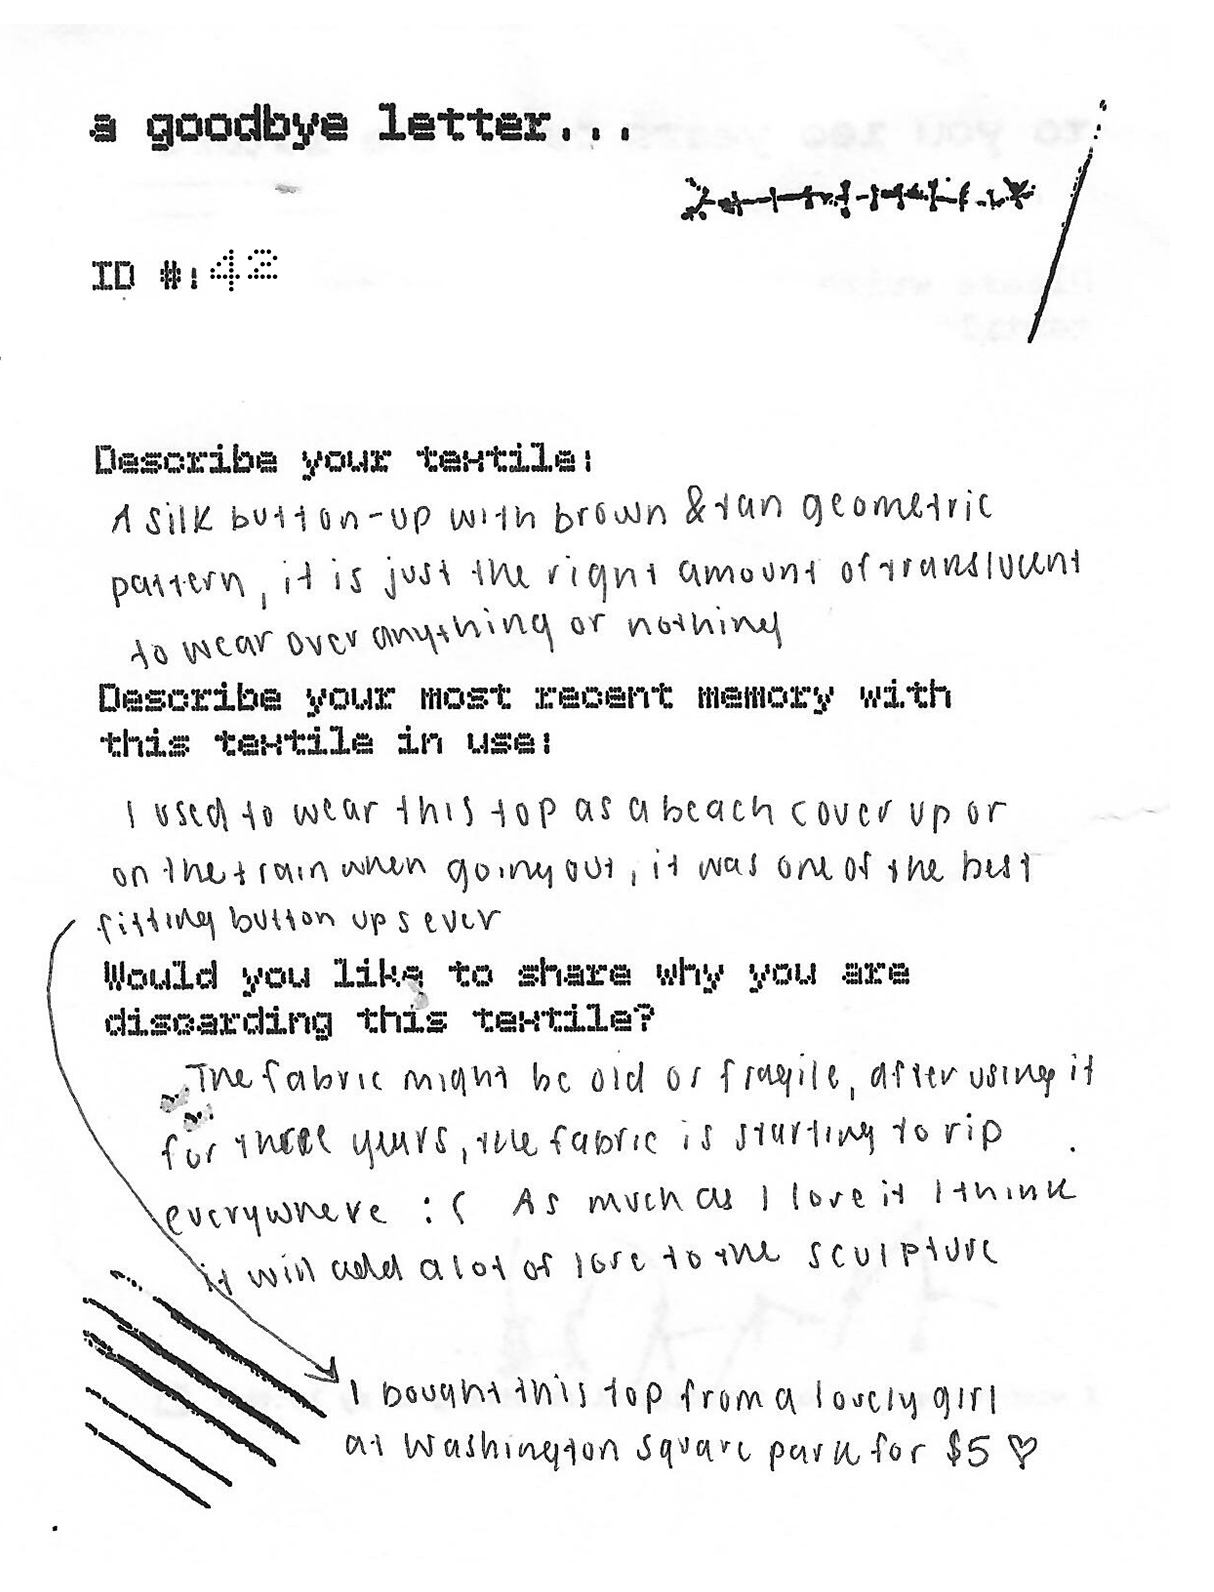 a goodbye letter...
ID #:42
Describe your textile:
A silk button-up with brown & tan geometric
pattern, it is just the right amount of translucent
to wear over anything or nothing
Describe your most recent memory with
this textile in use:
I used to wear this top as a beach cover up or
on the train when going out, it was one of the best
fitting button ups ever
Would you like to share why you are
discarding this textile?
The fabric might be old or fragile, after using it
for three years, the fabric is starting to rip
everywhere :( As much as I love it I think
it will add a lot of lore to the sculpture
I bought this top from a lovely girl
at Washington Square park for $5 ♡